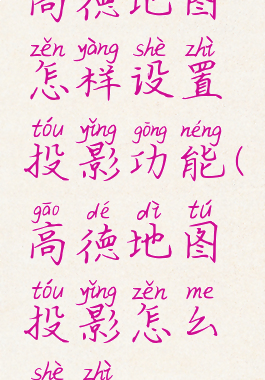 高德地图
zěn yàng shè zhì
怎样设置
tóu yǐng gōng néng
投影功能(
gāo dé dì tú
高德地图
tóu yǐng zěn me
投影怎么
shè zhì